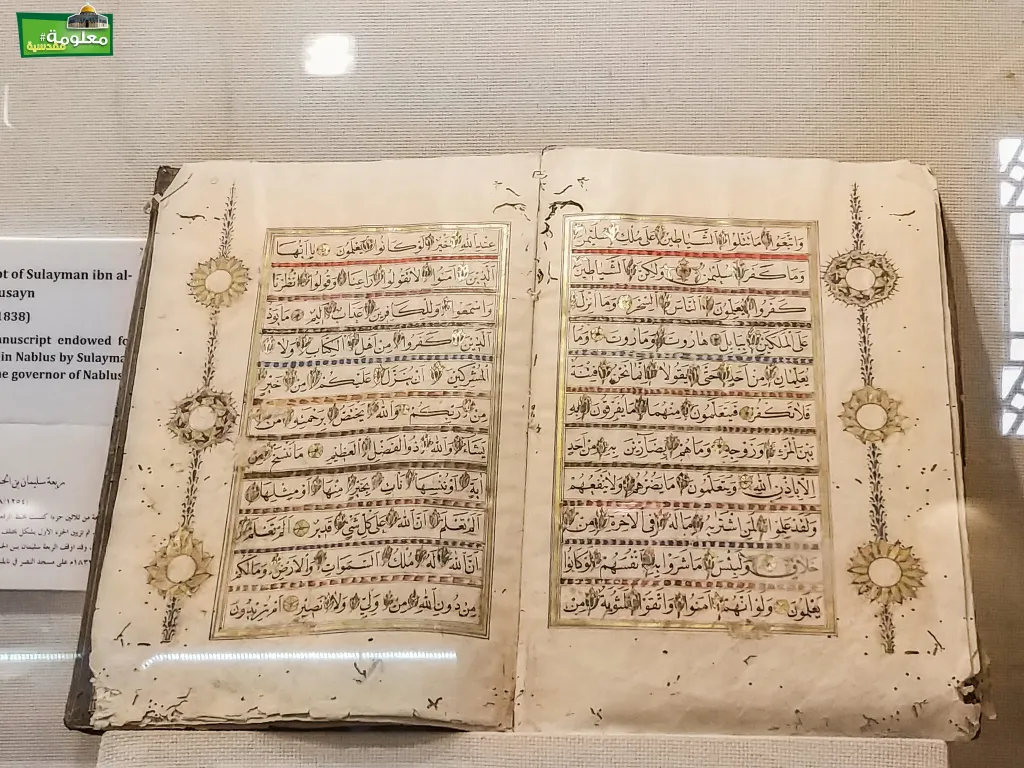 #معلومة
مقدسية
واتبعوا ما تتلوا الشياطين على ملك سليمن
وما كفر سليمن ولكن الشياطين
كفروا يعلمون الناس السحر وما انزل
على الملكين ببابل هاروت وماروت وما
يعلمان من احد حتى يقولا انما نحن فتنة
فلا تكفر فيتعلمون منهما ما يفرقون به
بين المرء وزوجه وما هم بضارين به من احد
الا باذن الله ويتعلمون ما يضرهم ولا ينفعهم
ولقد علموا لمن اشتريه ما له في الاخرة من
خلاق ولبئس ما شروا به انفسهم لو كانوا
يعلمون ولو انهم امنوا واتقوا لمثوبة من
عند الله خير لو كانوا يعلمون يا ايها
الذين امنوا لا تقولوا راعنا وقولوا انظرنا
واسمعوا وللكافرين عذاب اليم ما يود
الذين كفروا من اهل الكتاب ولا
المشركين ان ينزل عليكم من خير
من ربكم والله يختص برحمته من
يشاء والله ذو الفضل العظيم ما ننسخ من
اية او ننسها نات بخير منها او مثلها
الم تعلم ان الله على كل شيء قدير الم تعلم
ان الله له ملك السموات والارض وما لكم
من دون الله من ولي ولا نصير ام تريدون
pt of Sulayman ibn al-
usayn
1838)
anuscript endowed fo
in Nablus by Sulayma
he governor of Nablus
ربعة سليمان بن الح